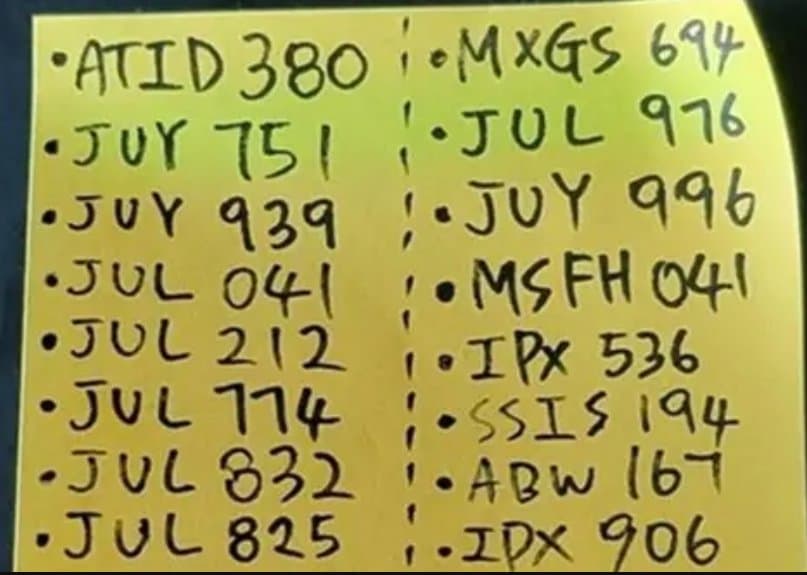 • ATID 380
• JUY 751
• JUY 939
• JUL 041
• JUL 212
• JUL 774
• JUL 832
• JUL 825
• MXGS 694
• JUL 976
• JUY 996
• MSFH 041
• IPX 536
• SSIS 194
• ABW 167
• IPX 906